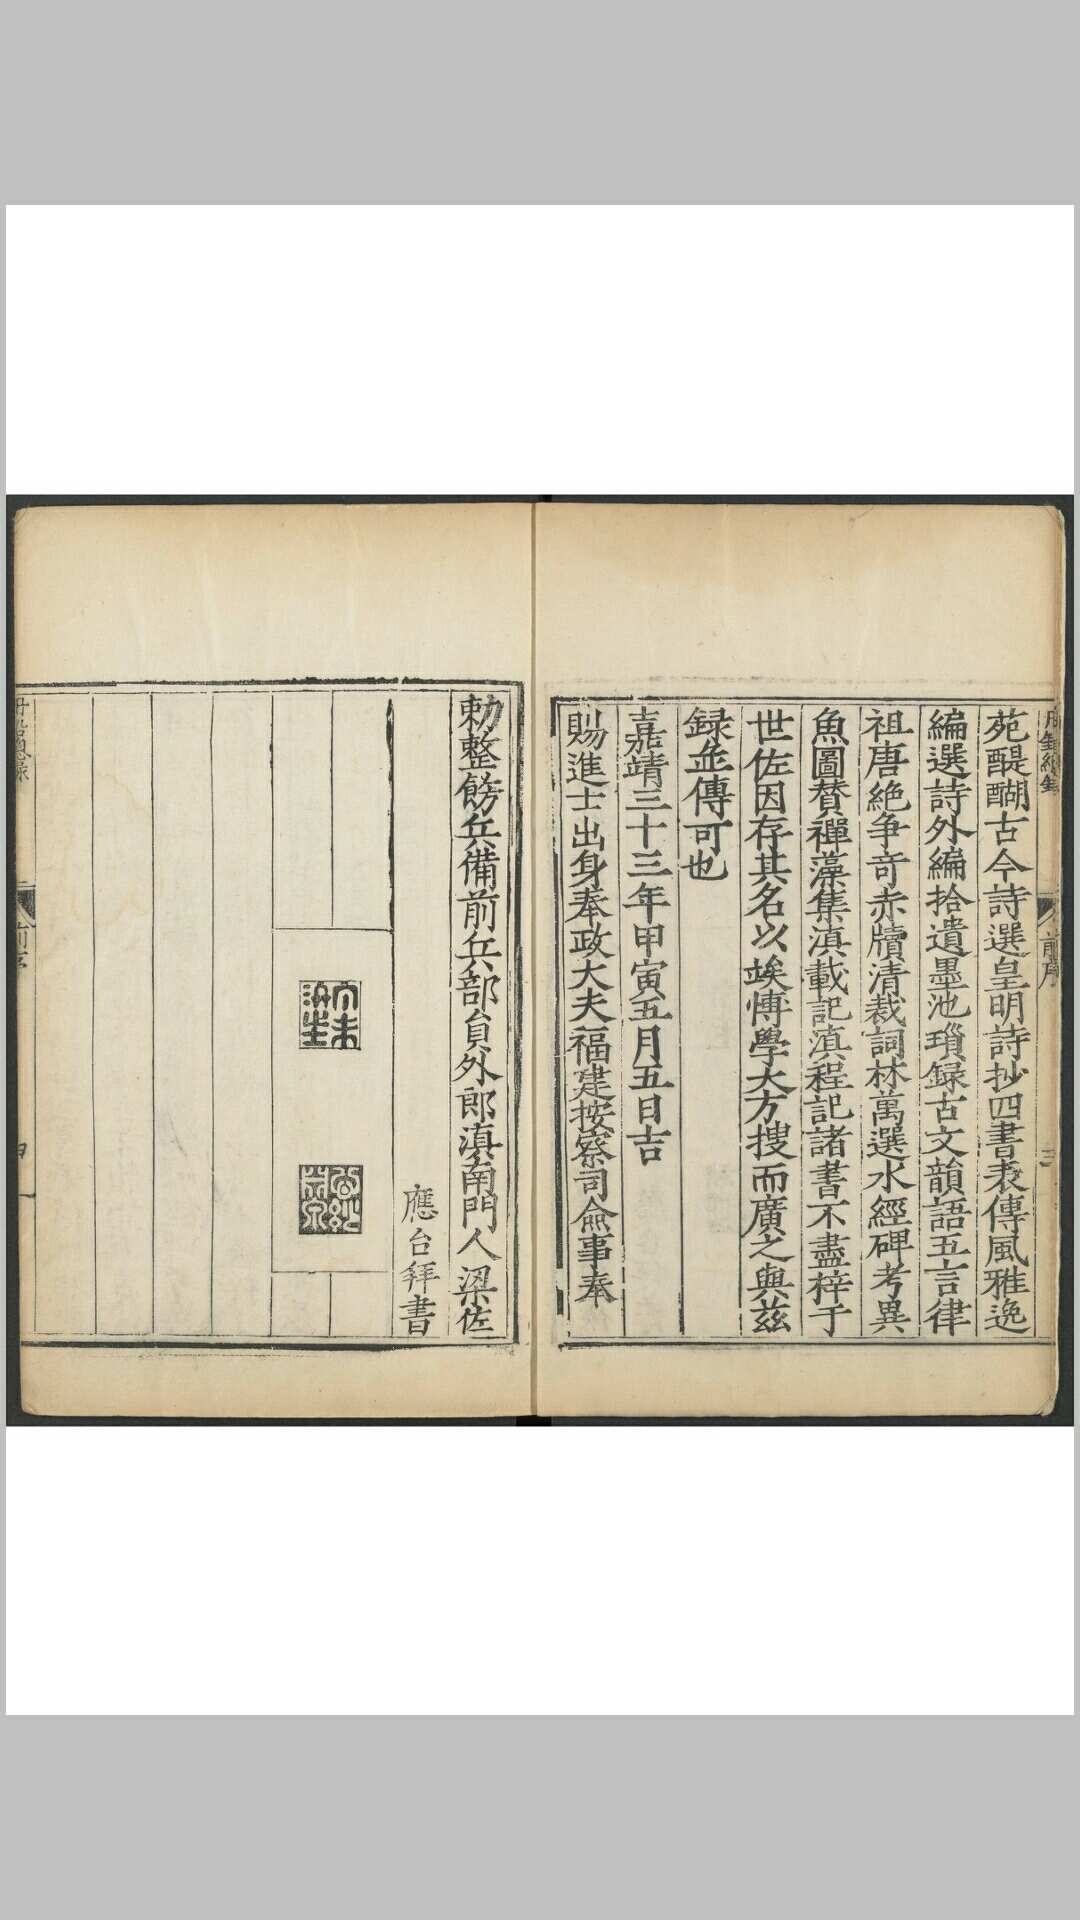 丹鉛總錄
前序
三
苑醍醐古今詩選皇明詩抄四書表傳風雅逸
編選詩外編拾遺墨池瑣録古文韻語五言律
祖唐絶争竒赤牘清裁詞林萬選水經碑考異
魚圖賛禪藻集滇載記滇程記諸書不盡梓于
世佐因存其名以竢愽學大方搜而廣之與兹
録並傳可也
嘉靖三十三年甲寅五月五日吉
賜進士出身奉政大夫福建按察司僉事奉
勅整飭兵備前兵部貟外郎滇南門人梁佐
應台拜書
丹鉛總录
前序
四